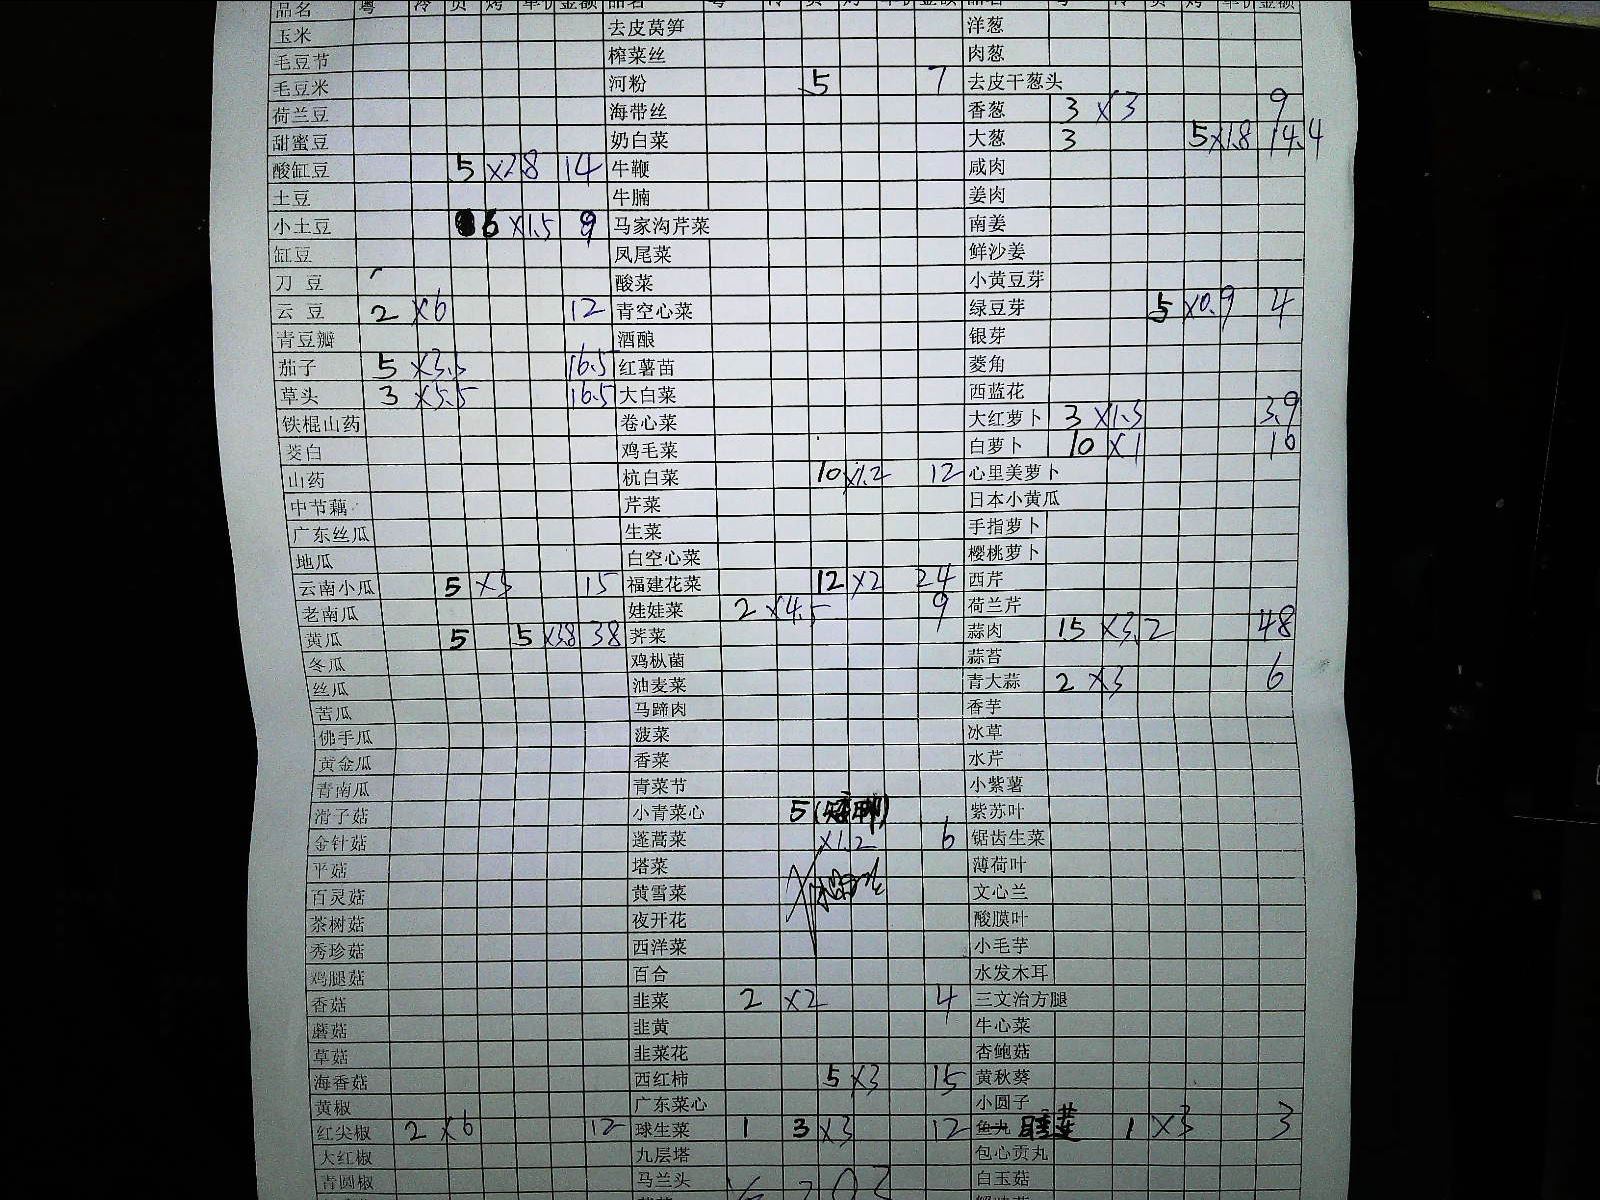 品名 粤 冷 贡 烤 单价 金额 品名 粤 冷 贡 烤 单价 金额 品名 粤 冷 贡 烤 单价 金额
玉米 去皮莴笋 洋葱
毛豆节 榨菜丝 肉葱
毛豆米 河粉 5 7 去皮干葱头
荷兰豆 海带丝 香葱 3 ×3 9
甜蜜豆 奶白菜 大葱 3 5×1.8 14.4
酸缸豆 5 ×2.8 14 牛鞭 咸肉
土豆 牛腩 姜肉
小土豆 6 ×1.5 9 马家沟芹菜 南姜
缸豆 凤尾菜 鲜沙姜
刀豆 酸菜 小黄豆芽
云豆 2 ×6 12 青空心菜 绿豆芽 5 ×0.9 4
青豆瓣 酒酿 银芽
茄子 5 ×3.3 16.5 红薯苗 菱角
草头 3 ×5.5 16.5 大白菜 西蓝花
铁棍山药 卷心菜 大红萝卜 3 ×1.3 3.9
茭白 鸡毛菜 白萝卜 10 ×1 10
山药 杭白菜 10×1.2 12 心里美萝卜
中节藕 芹菜 日本小黄瓜
广东丝瓜 生菜 手指萝卜
地瓜 白空心菜 樱桃萝卜
云南小瓜 5 ×3 15 福建花菜 12 ×2 24 西芹
老南瓜 娃娃菜 2 ×4.5 9 荷兰芹
黄瓜 5 5 ×3.8 38 荠菜 蒜肉 15 ×3.2 48
冬瓜 鸡枞菌 蒜苔
丝瓜 油麦菜 青大蒜 2 ×3 6
苦瓜 马蹄肉 香芋
佛手瓜 菠菜 冰草
黄金瓜 香菜 水芹
青南瓜 青菜节 小紫薯
滑子菇 小青菜心 5 紫苏叶
金针菇 蓬蒿菜 ×1.2 6 锯齿生菜
平菇 塔菜 薄荷叶
百灵菇 黄雪菜 文心兰
茶树菇 夜开花 酸膜叶
秀珍菇 西洋菜 小毛芋
鸡腿菇 百合 水发木耳
香菇 韭菜 2 ×2 4 三文治方腿
蘑菇 韭黄 牛心菜
草菇 韭菜花 杏鲍菇
海香菇 西红柿 5 ×3 15 黄秋葵
黄椒 广东菜心 小圆子
红尖椒 2 ×6 12 球生菜 1 3 ×3 12 鱼丸 1 ×3 3
大红椒 九层塔 包心贡丸
青圆椒 马兰头 白玉菇